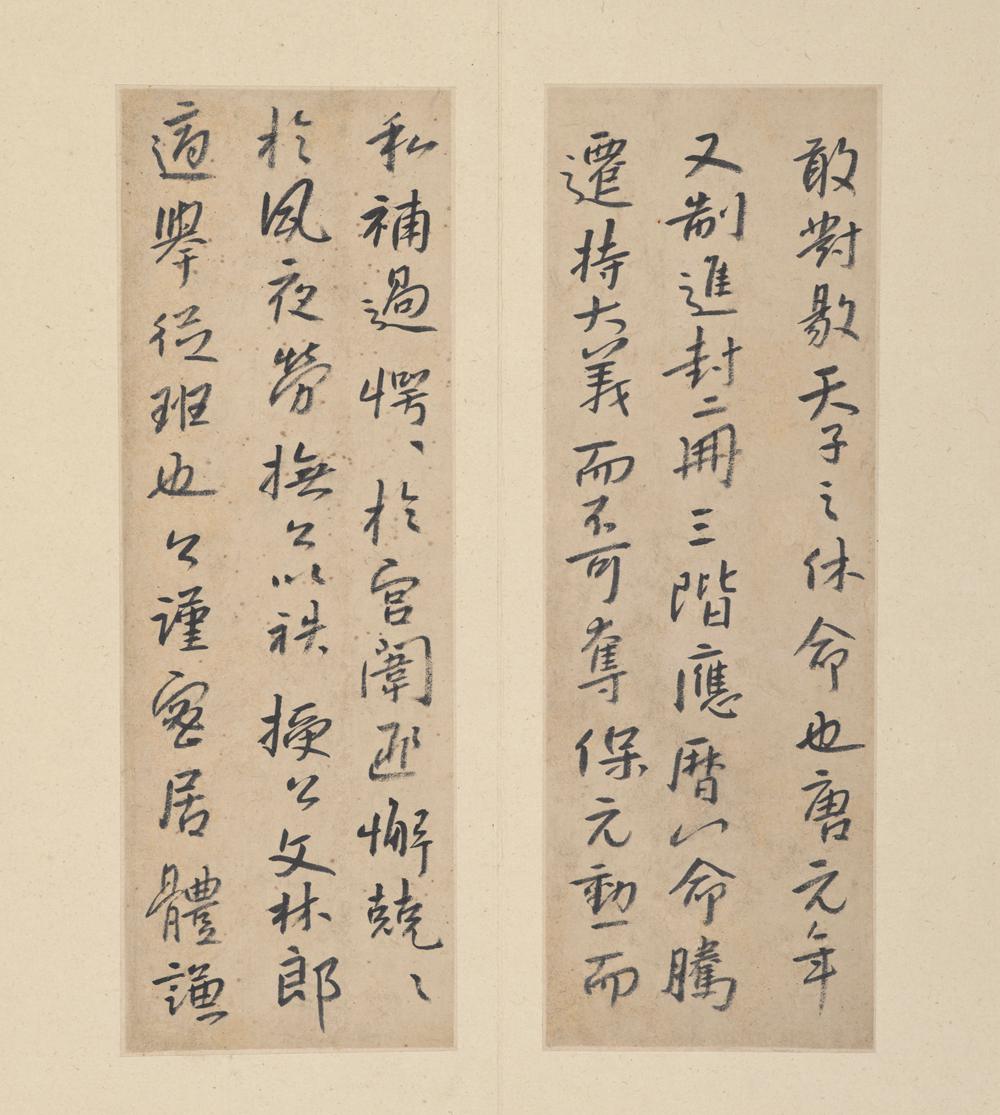 敢對敭天子之休命也唐元年
又制進封二冊三階應曆八命騰
遷持大義而不可奪保元勳而
私補過愕〻於宮闈匪懈兢〻
於夙夜勞撫公以袟授公文林郎
適舉從班也公謹密居體謙